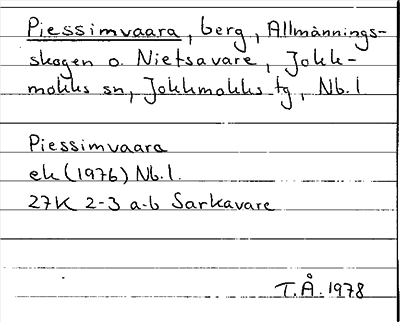 Piessimvaara, berg, Allmännings-
skogen o. Nietsavare, Jokk-
mokks sn, Jokkmokks tg, Nb. l
Piessimvaara
ek (1976) Nb. l.
27K 2-3 a-b Sarkavare
T.Å. 1978